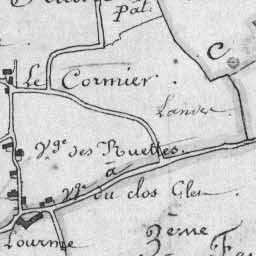 Pat.
C
Le Cormier
Landes
V.ge des Ruettes
à
V.ge du clos Glen
Lourme
3eme